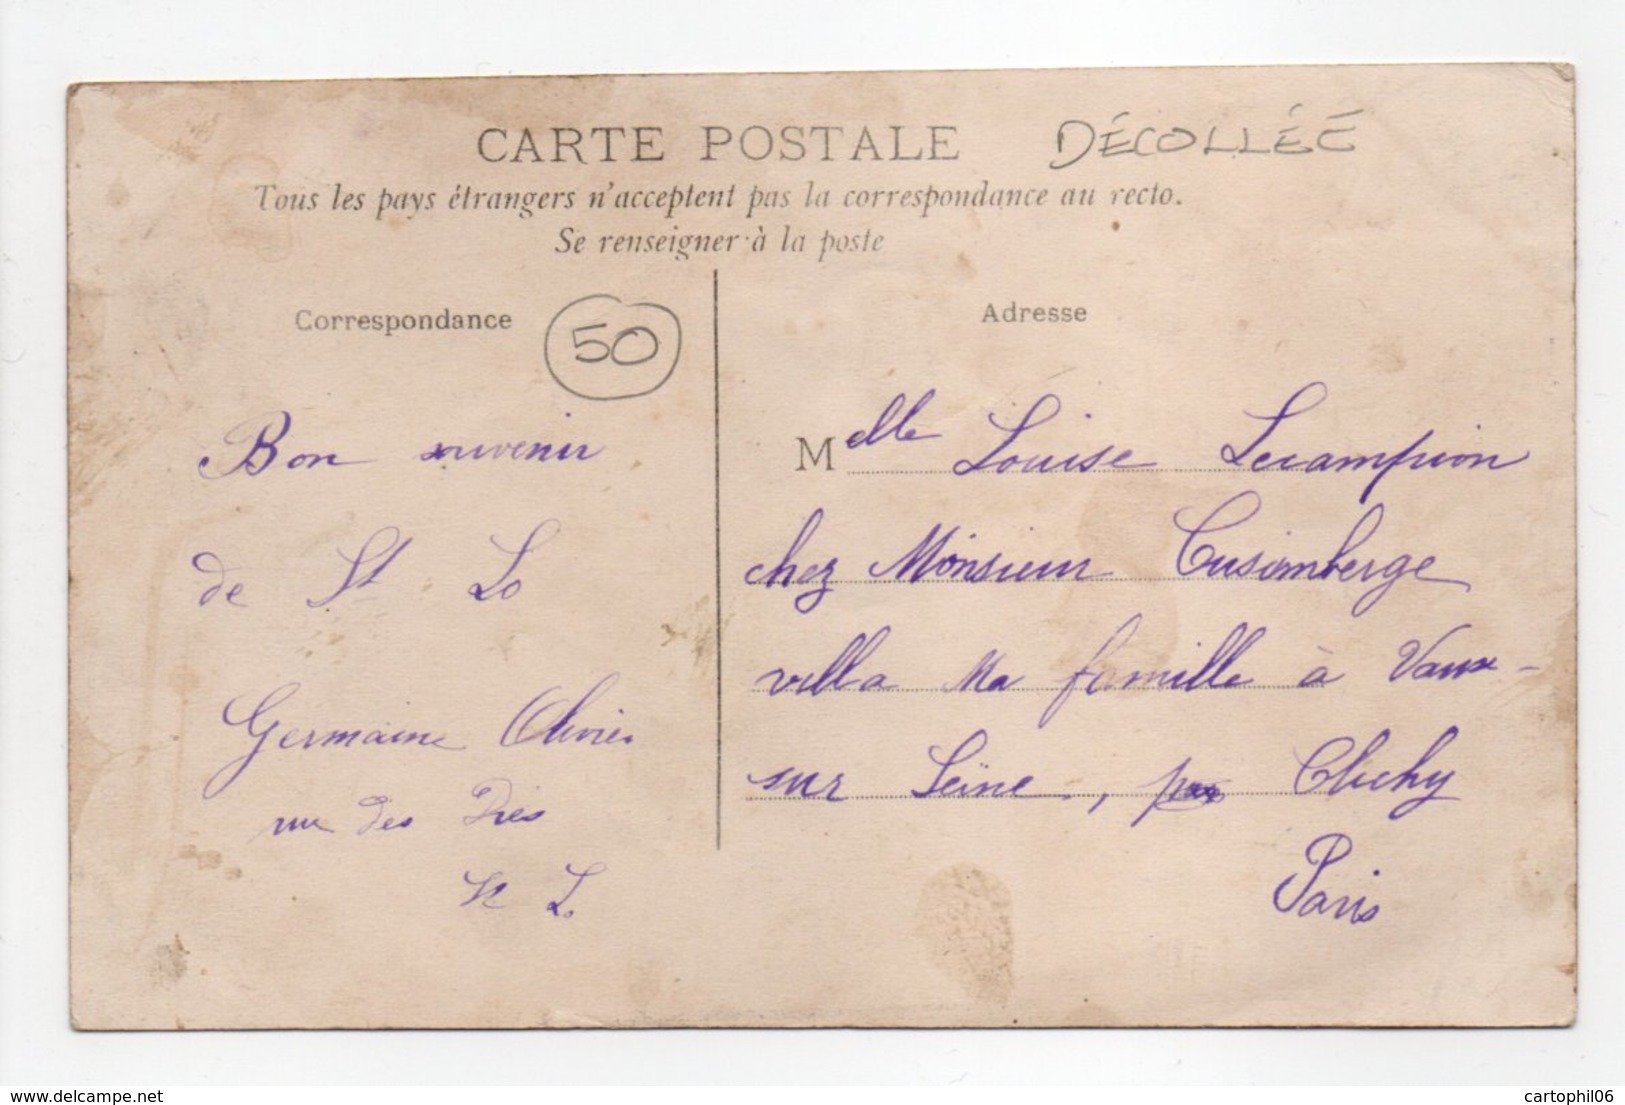 CARTE POSTALE DÉCOLLÉE
Tous les pays étrangers n'acceptent pas la correspondance au recto.
Se renseigner à la poste
Correspondance
50
Bon souvenir
de St Lo
Germaine Olivier
rue des Prés
St L.
Adresse
Melle Louise Lecampion
chez Monsieur Cusimberge
villa Ma famille à Vaux-
sur Seine, Clichy
Paris
delcampe.net
cartophil06